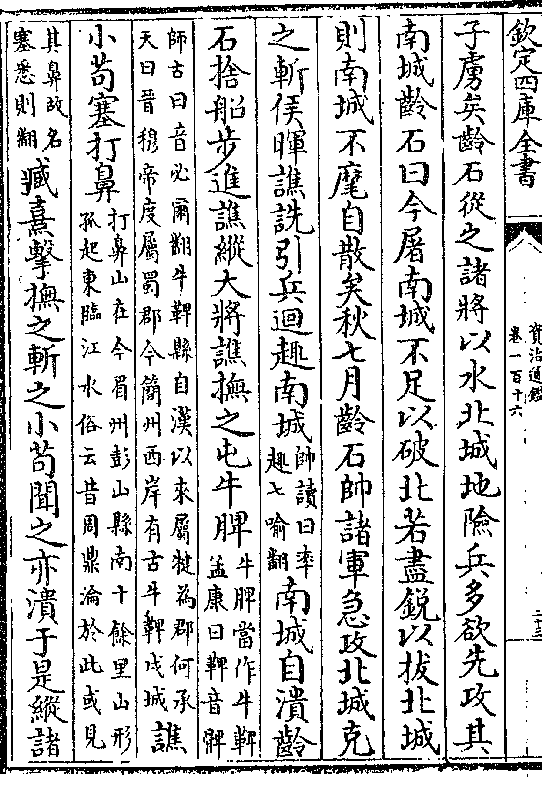 欽定四庫全書
資治通鑑
卷一百十六
二十三
子虜矣齡石從之諸將以水北城地險兵多欲先攻其
南城齡石曰今屠南城不足以破北若盡銳以拔北城
則南城不麾自散矣秋七月齡石帥諸軍急攻北城克
之斬侯暉譙詵引兵迴趣南城帥讀曰率趣七喻翻南城自潰齡
石捨船步進譙縱大將譙撫之屯牛脾牛脾當作牛鞞孟康曰鞞音髀
師古曰音必爾翻牛鞞縣自漢以來屬犍為郡何承
天曰晉穆帝度屬蜀郡今簡州西岸有古牛鞞戍城譙
小茍塞打鼻打鼻山在今眉州彭山縣南十餘里山形
孤起東臨江水俗云昔周鼎淪於此或見
其鼻故名
塞悉則翻臧熹擊撫之斬之小茍聞之亦潰于是縱諸